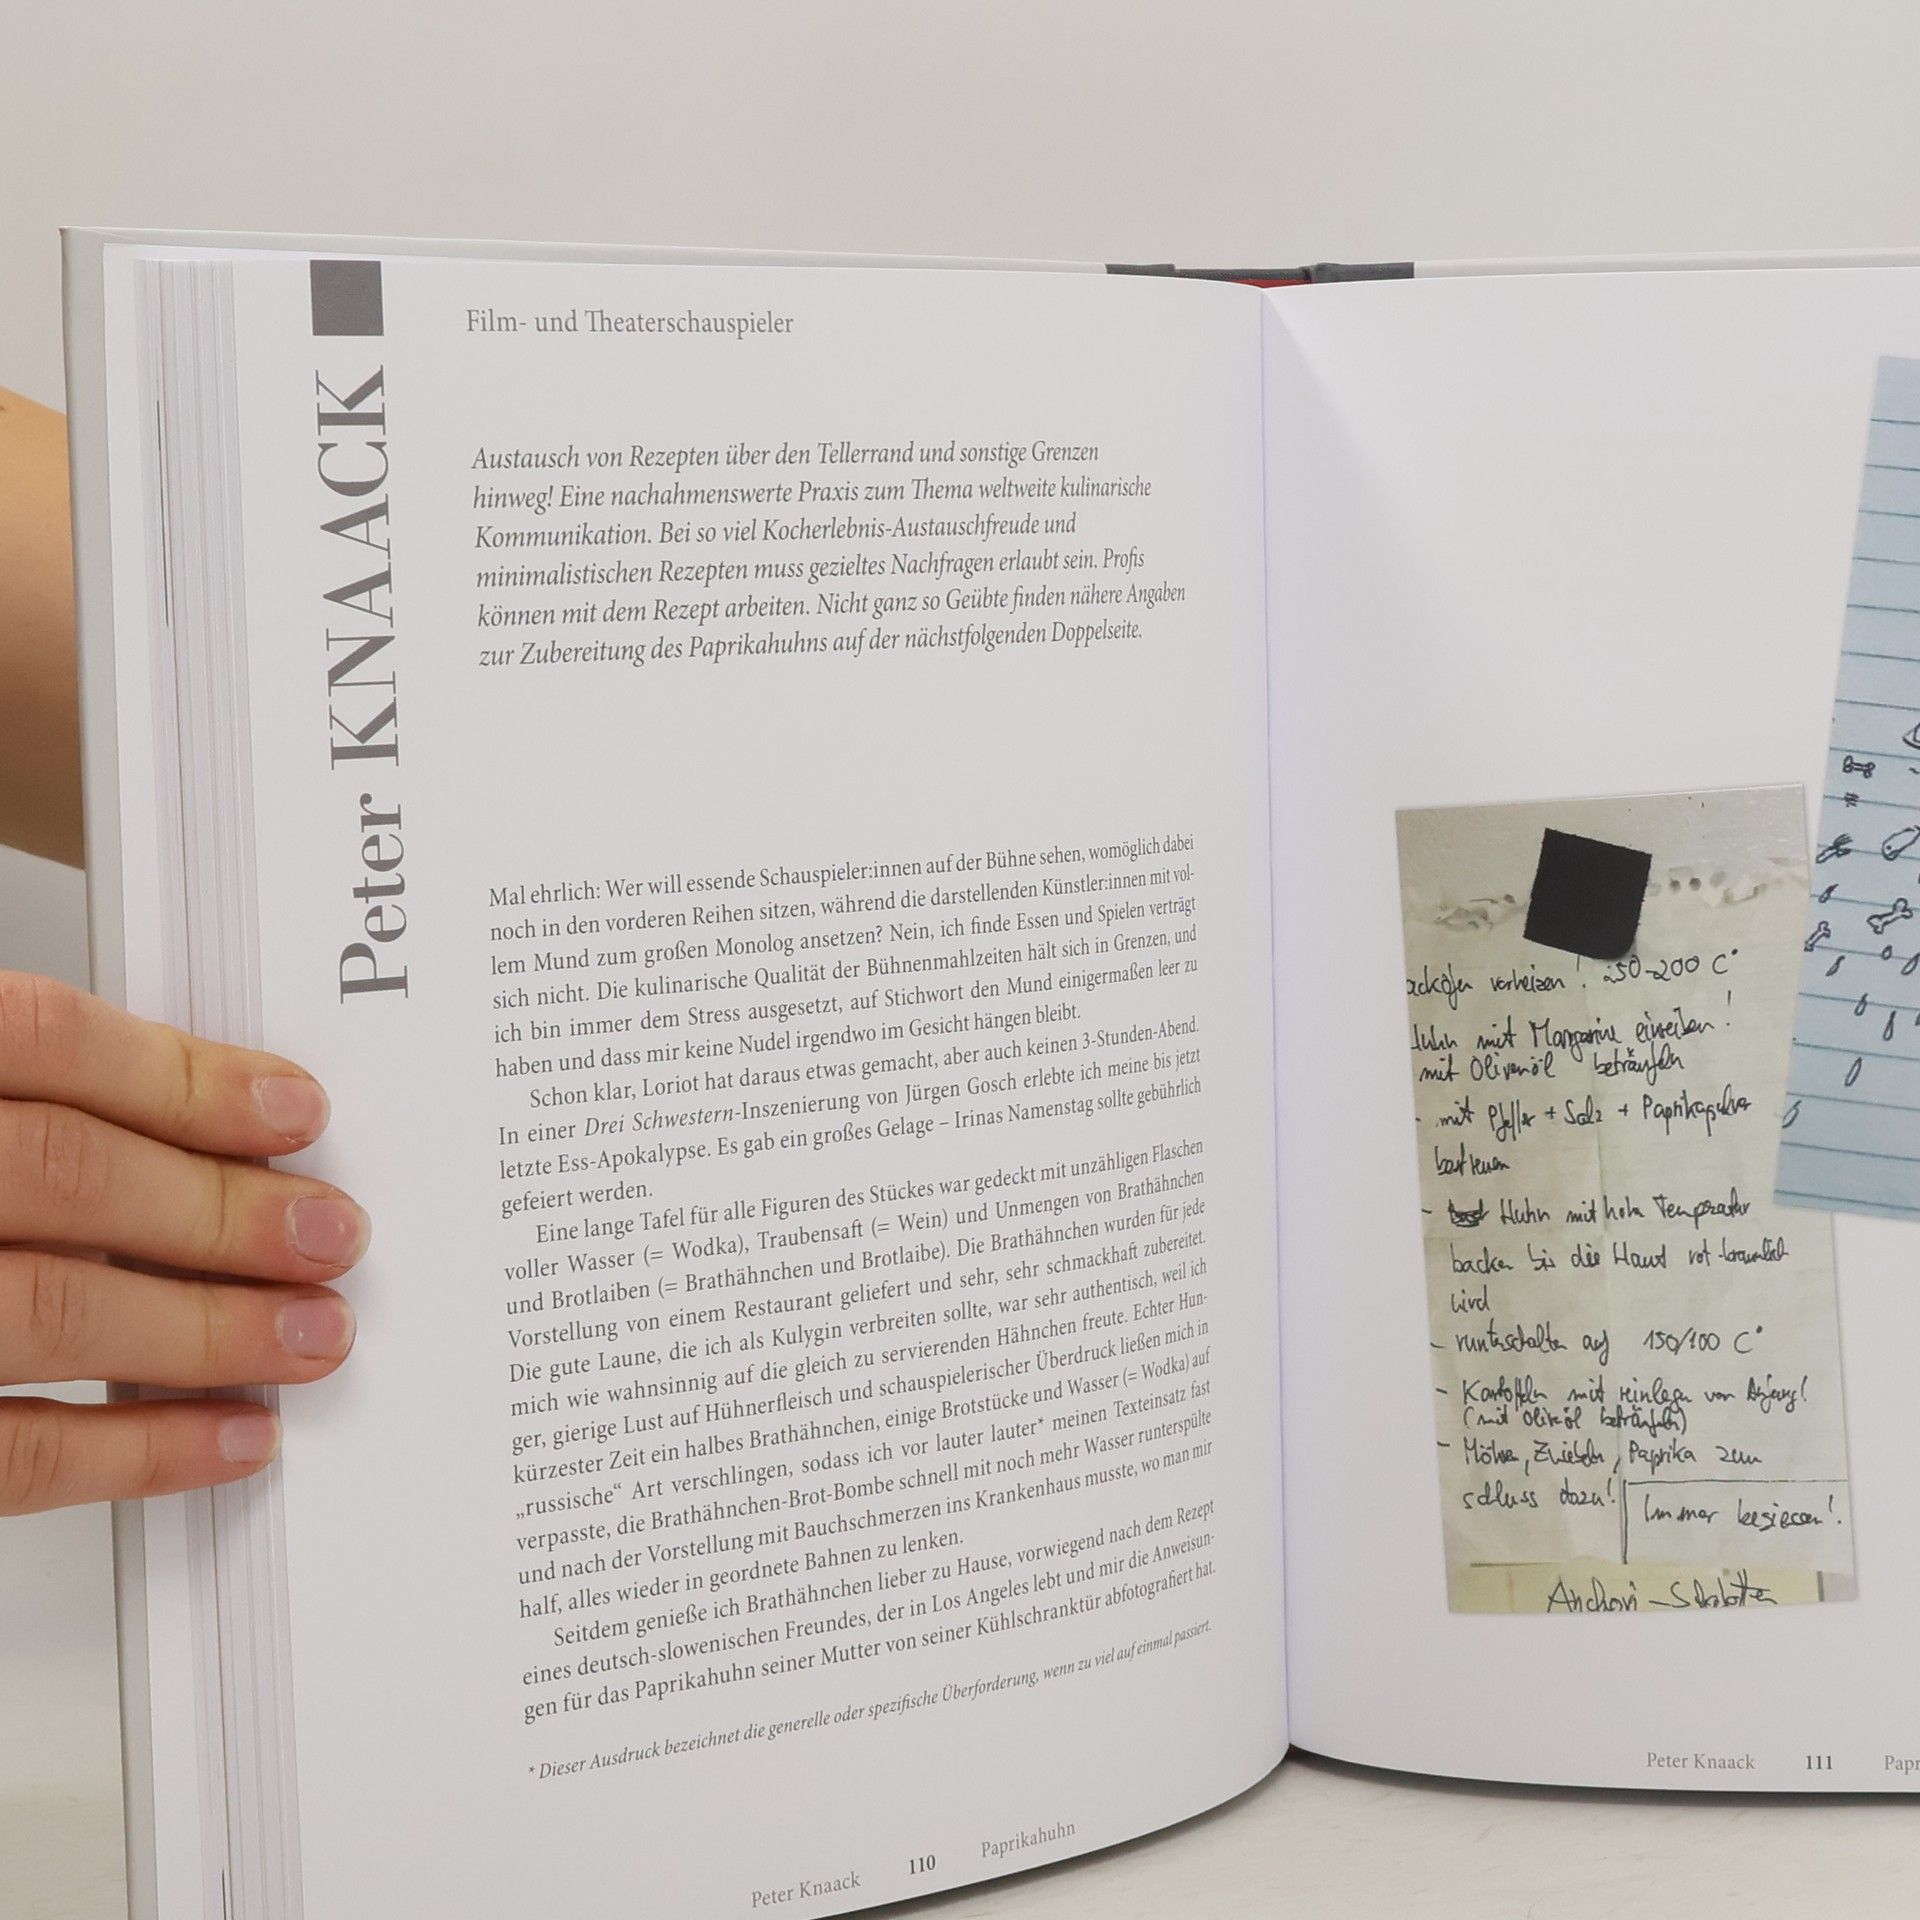 Peter KNAACK
Film- und Theaterschauspieler
Austausch von Rezepten über den Tellerrand und sonstige Grenzen
hinweg! Eine nachahmenswerte Praxis zum Thema weltweite kulinarische
Kommunikation. Bei so viel Kocherlebnis-Austauschfreude und
minimalistischen Rezepten muss gezieltes Nachfragen erlaubt sein. Profis
können mit dem Rezept arbeiten. Nicht ganz so Geübte finden nähere Angaben
zur Zubereitung des Paprikahuhns auf der nächstfolgenden Doppelseite.
Mal ehrlich: Wer will essende Schauspieler:innen auf der Bühne sehen, womöglich dabei
noch in den vorderen Reihen sitzen, während die darstellenden Künstler:innen mit vol-
lem Mund zum großen Monolog ansetzen? Nein, ich finde Essen und Spielen verträgt
sich nicht. Die kulinarische Qualität der Bühnenmahlzeiten hält sich in Grenzen, und
ich bin immer dem Stress ausgesetzt, auf Stichwort den Mund einigermaßen leer zu
haben und dass mir keine Nudel irgendwo im Gesicht hängen bleibt.
Schon klar, Loriot hat daraus etwas gemacht, aber auch keinen 3-Stunden-Abend.
In einer Drei Schwestern-Inszenierung von Jürgen Gosch erlebte ich meine bis jetzt
letzte Ess-Apokalypse. Es gab ein großes Gelage – Irinas Namenstag sollte gebührlich
gefeiert werden.
Eine lange Tafel für alle Figuren des Stückes war gedeckt mit unzähligen Flaschen
voller Wasser (= Wodka), Traubensaft (= Wein) und Unmengen von Brathähnchen
und Brotlaiben (= Brathähnchen und Brotlaibe). Die Brathähnchen wurden für jede
Vorstellung von einem Restaurant geliefert und sehr, sehr schmackhaft zubereitet.
Die gute Laune, die ich als Kulygin verbreiten sollte, war sehr authentisch, weil ich
mich wie wahnsinnig auf die gleich zu servierenden Hähnchen freute. Echter Hun-
ger, gierige Lust auf Hühnerfleisch und schauspielerischer Überdruck ließen mich in
kürzester Zeit ein halbes Brathähnchen, einige Brotstücke und Wasser (= Wodka) auf
„russische“ Art verschlingen, sodass ich vor lauter lauter* meinen Texteinsatz fast
verpasste, die Brathähnchen-Brot-Bombe schnell mit noch mehr Wasser runterspülte
und nach der Vorstellung mit Bauchschmerzen ins Krankenhaus musste, wo man mir
half, alles wieder in geordnete Bahnen zu lenken.
Seitdem genieße ich Brathähnchen lieber zu Hause, vorwiegend nach dem Rezept
eines deutsch-slowenischen Freundes, der in Los Angeles lebt und mir die Anweisun-
gen für das Paprikahuhn seiner Mutter von seiner Kühlschranktür abfotografiert hat.
* Dieser Ausdruck bezeichnet die generelle oder spezifische Überforderung, wenn zu viel auf einmal passiert.
Peter Knaack 110 Paprikahuhn
ackofen vorheizen! 250-200 C°
Huhn mit Margarine einreiben!
mit Olivenöl beträufeln
- mit Pfeffer + Salz + Paprikapulver
bestreuen
- Huhn mit hoher Temperatur
backen bis die Haut rot-braunlich
wird
- runterschalten auf 150/100 C°
- Kartoffeln mit reinlegen von Anfang!
(mit Olivenöl beträufeln)
- Möhren, Zwiebeln, Paprika zum
schluss dazu!
Immer begiessen!
Anchovi -
Peter Knaack 111 Papr